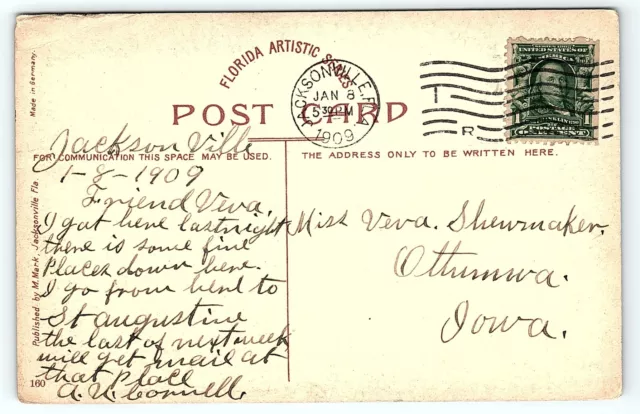 FLORIDA ARTISTIC SERIES
JACKSONVILLE, FLA.
JAN 8
530PM
1909
T
R
UNITED STATES OF
AMERICA
FRANKLIN
1
POSTAGE
ONE CENT
POST CARD
FOR COMMUNICATION THIS SPACE MAY BE USED.
THE ADDRESS ONLY TO BE WRITTEN HERE.
Jackson Ville
1-8-1909
Friend Veva.
I got here last night
there is some fine
Places down here.
I go from here to
St augustine
the last of next week
will get mail at
that place
Miss Veva. Shewmaker.
Ottumwa.
Iowa.
Made in Germany.
Published by M. Mark, Jacksonville Fla.
160